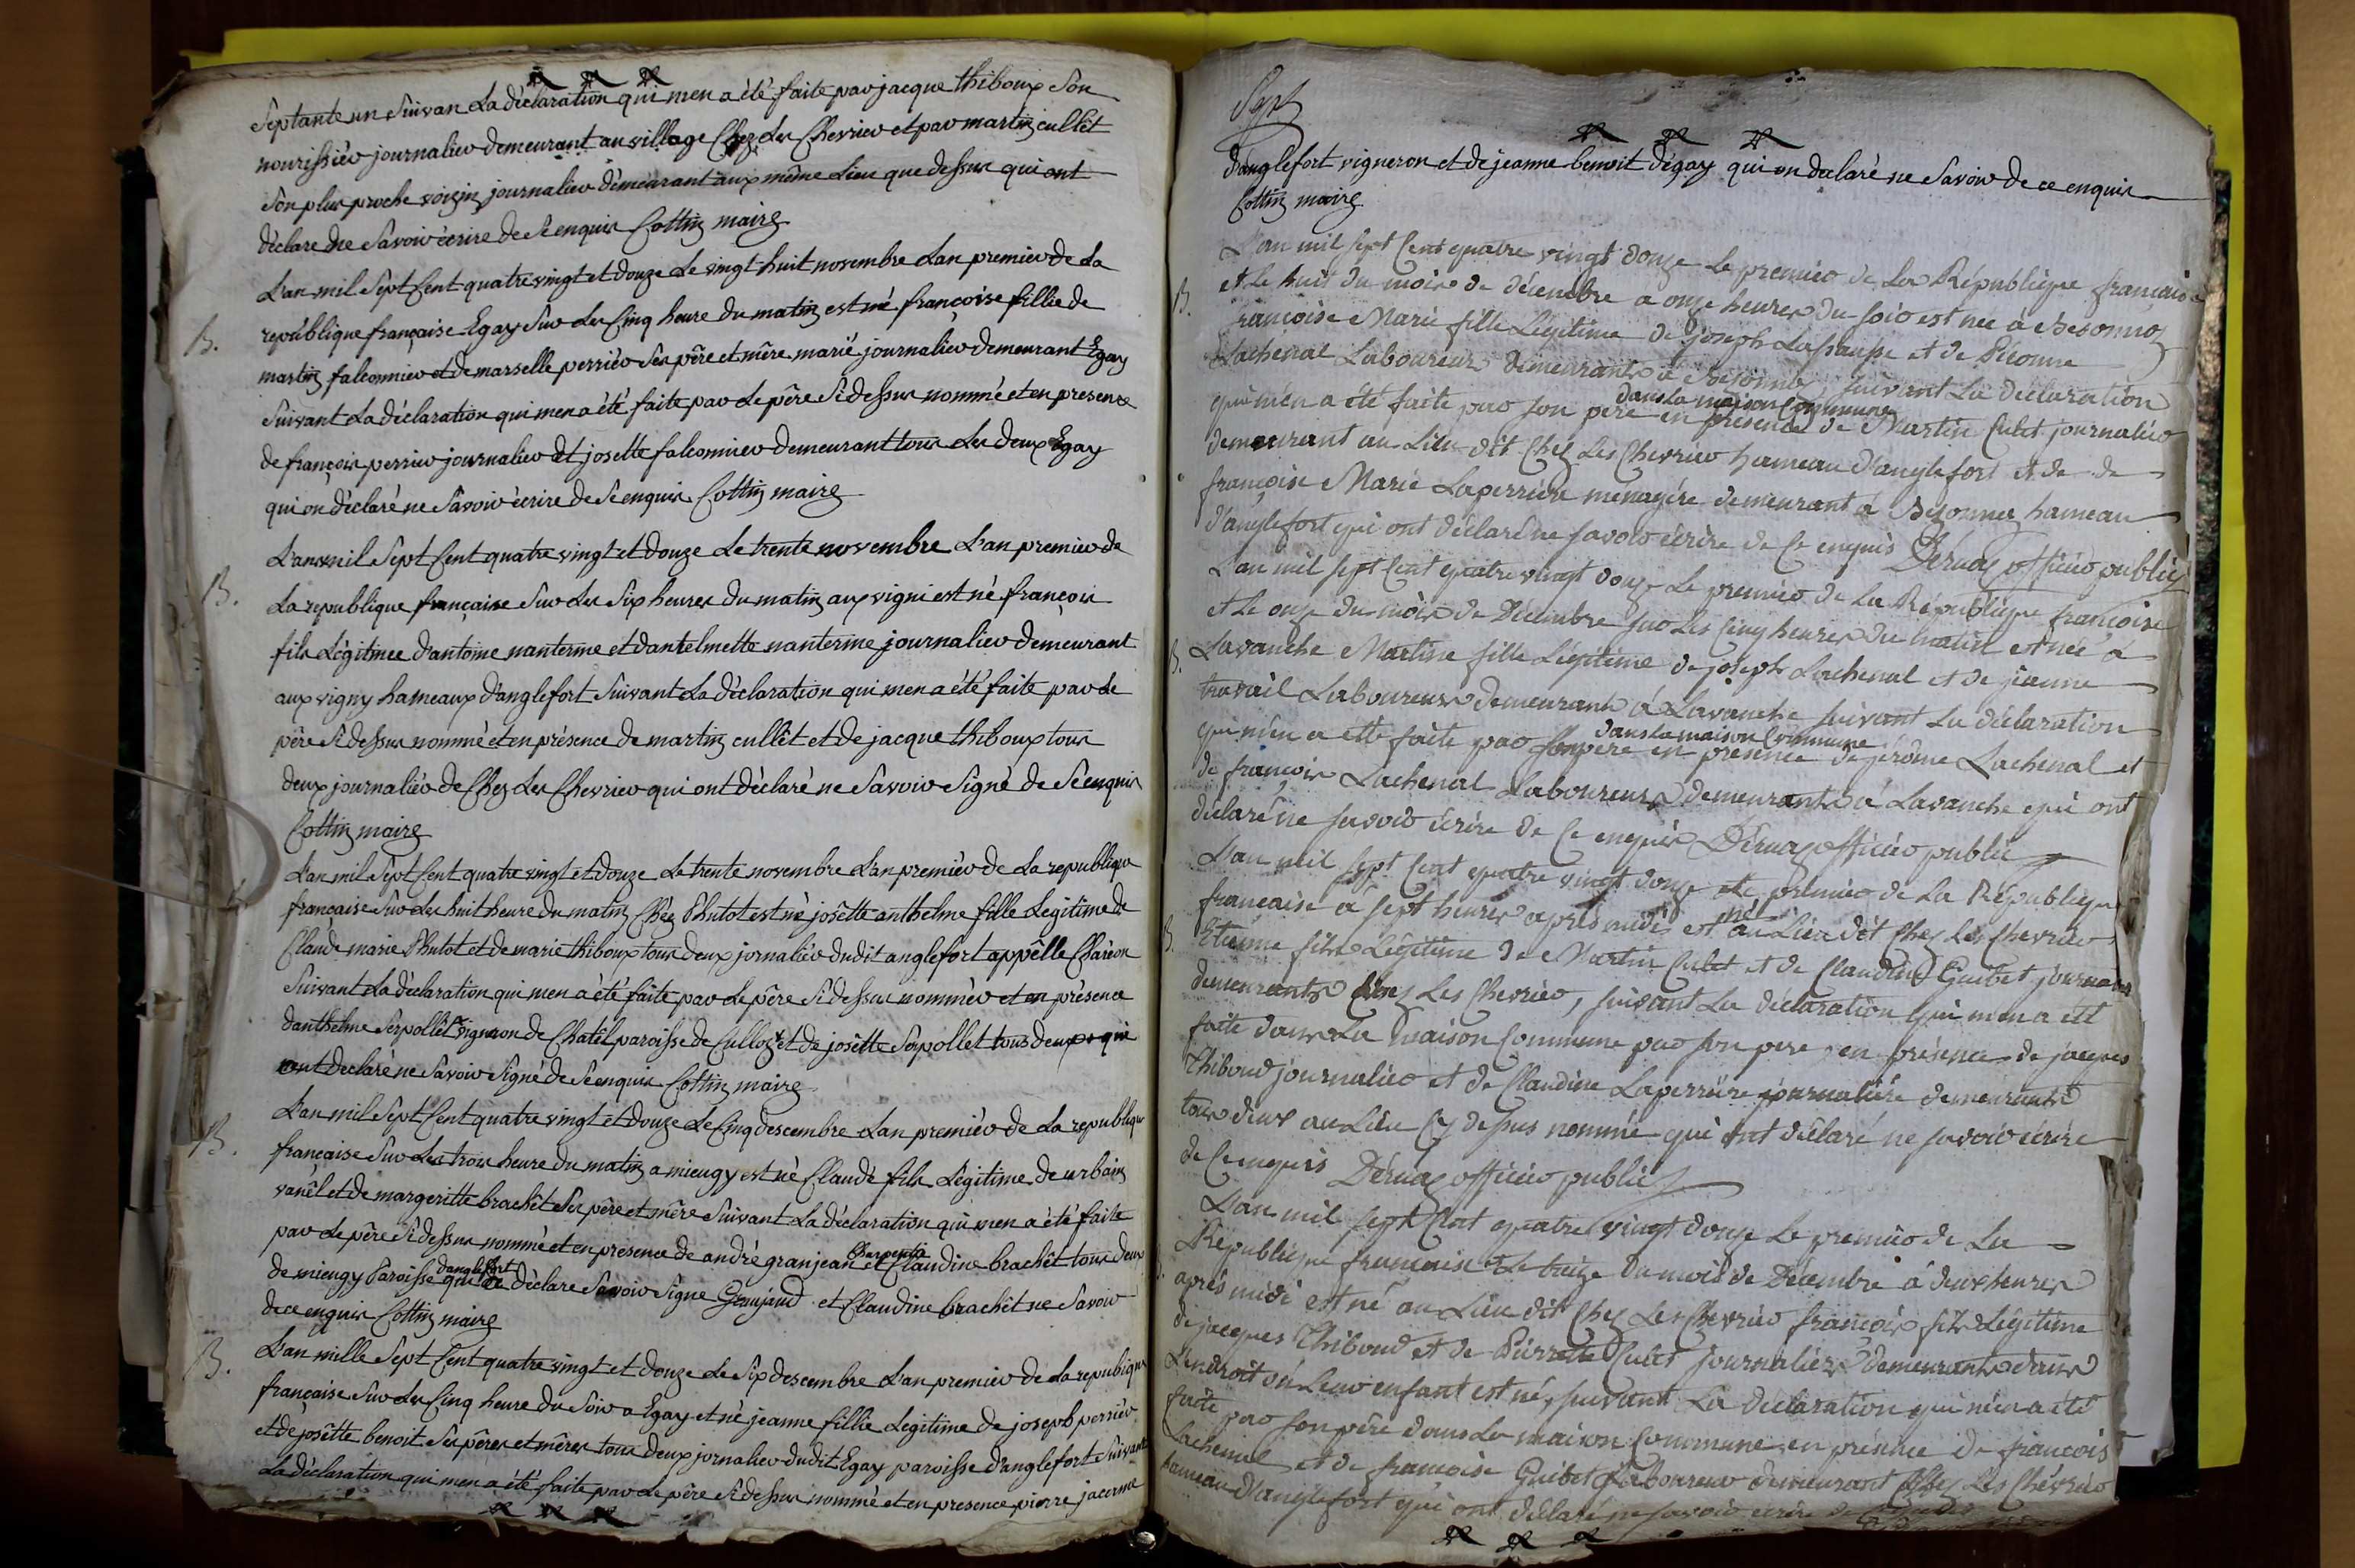 Septante un Suivan La déclaration qui men a été faite par jacque thiboux Son
nourissiér journalier demeurant au village Chez Les Chevrier et par martin cullêt
Son plus proche voisin journalier démeurant aux même Lieu que dessus qui ont
déclare Ne Savoir écrire de Sé enquis Cottin maire
L'an mil Sept Cent quatre vingt et douze Le vingt huit novembre Lan premier de La
B.
republique française Egay Sur Les Cinq heure du matin est né françoise fillie de
martin falconnier et de marselle perriér Ses père et mère marié journalier demeurant Egay
Suivant La déclaration qui men a été faite par Le père Si dessus nommé et en presence
de françois perrier journalier et josette falconnier demeurant tous Les deux Egay
qui on déclaré ne Savoir écrire de Sé enquis Cottin maire
L'an mil Sept Cent quatre vingt et douze Le trente novembre L'an premier de
B.
La republique française Sur Les Six heures du matin aux vigni est né françois
fils Légitimee d'antoine nanterme et dantelmette nanterme journalier demeurant
aux vigny hameaux d'anglefort Suivant La déclaration qui men a été faite par Le
père Si dessus nommé et en présence de martin cullêt et de jacque thiboux tous
deux journaliér de Chez Les Chevrier qui ont déclaré ne Savoir Signé de Sé enquis
Cottin maire
L'an mil Sept Cent quatre vingt et douze Le trente novembre L'an premiér de La republique
française Sur Les huit heure du matin Chéz Phutot est né josêtte anthelme fille Legitime de
Claude marie Phutot et de marie thiboux tous deux jornaliér dudit anglefort appêlle Charéon
Suivant La déclaration qui men a été faite par Le père Si dessus nommér et en présence
danthelme Serpollêt vigneron de Chatél paroisse de Culloz et de josêtte Serpollet tous deux qui
ont declaré ne Savoir Signé de Sé enquis Cottin maire
L'an mil Sept Cent quatre vingt et douze Le Cinq descembre Lan premiér de La republique
B.
française Sur Les trois heure du matin a mieugy est né Claude fils Légitime de urbain
vanêl et de margeritte brachêt Ses père et mère Suivant La déclaration qui men a été faite
par Le père Si dessus nommé et en présence de andré granjean Charpentié et Claudine brachêt tous deux
de mieugy Paroisse d'anglefort qui déclare Savoir Signe Granjand et Claudine brachêt ne Savoir
de ce enquis Cottin maire
L'an mille Sept Cent quatre vingt et douze Le Six descembre L'an premier de La republique
B.
française Sur Les Cinq heure du Soir a Egay et né jeanne fillie Legitime de joseph perriér
et de josêtte benoit Ses pères et mères tous deux jornalier dudit Egay paroisse d'anglefort Suivant
La déclaration qui men a été faite par Le père Si dessus nommé et en presence pierre jacerme
Sept
d'anglefort vigneron et de jeanne benoit d'égay qui on declaré ne Savoir de ce enquis
Cottin maire
L'an mil sept Cent quatre vingt douze Le premier de La République française
B.
et le huit du mois de décembre a onze heures du soir est née à Besonnoz
françoise Marie fille Légitime de joseph Lasausse et de
Lachenal Laboureurs demeurants à Bezonnes suivant La déclaration
qui m'en a été faite par son père dans La maison Commune en présence de Martin Culet journalier
demeurant au Lieu dit Chez Les Chevrier hameau d'anglefort et de de
françoise Marie Laperriere menagére demeurant à Bezonnes hameau
d'anglefort qui ont déclaré ne savoir écrire de Ce enquis Dérua officier public
L'an mil sept Cent quatre vingt douze Le premier de La République françoise
et Le onze du mois de Décembre sur Les Cinq heures du matin est née à
B.
Lavanche Martine fille Légitime de joseph Lachenal et de jeanne
travail Laboureurs demeurants à Lavanche suivant La déclaration
qui m'en a étté faite par son père dans La maison Commune en présence de jérôme Lachenal et
de françois Lachenal Laboureurs demeurants à Lavanche qui ont
déclaré ne savoir écrire de Ce enquis Dérua officier public
L'an mil sept Cent quatre vingt douze et Le premier de La République
française à sept heures après midi est né au Lieu dit Chez Les Chevrier
B.
Etienne fils Légitime de Martin Culet et de Claudine Guibet journaliers
demeurants Chez Les Chevrier, suivant La déclaration qui m'en a été
faite dans La Maison Commune par son pere en présence de jacques
Thiboud journalier et de Claudine Laperriere journaliére demeurants
tous deux au Lieu Cy dessus nommé qui ont déclaré ne savoir écrire
de Ce enquis Dérua officier public
L'an mil sept Cent quatre vingt douze Le premier de La
République française et Le treize du mois de Décembre à deux heures
après midi est né au Lieu dit Chez Les Chevrier françois fils Légitime
de jacques Thiboud et de Pierrette Culet journaliers demeurants dans
L'endroit où Leur enfant est né, suivant La déclaration qui m'en a été
faite par son père dans La maison Commune en présence de françois
Lachenal et de françoise Guibet Laboureur demeurant Chez Les Chevrier
hameau d'anglefort qui ont déclaré ne savoir écrire de